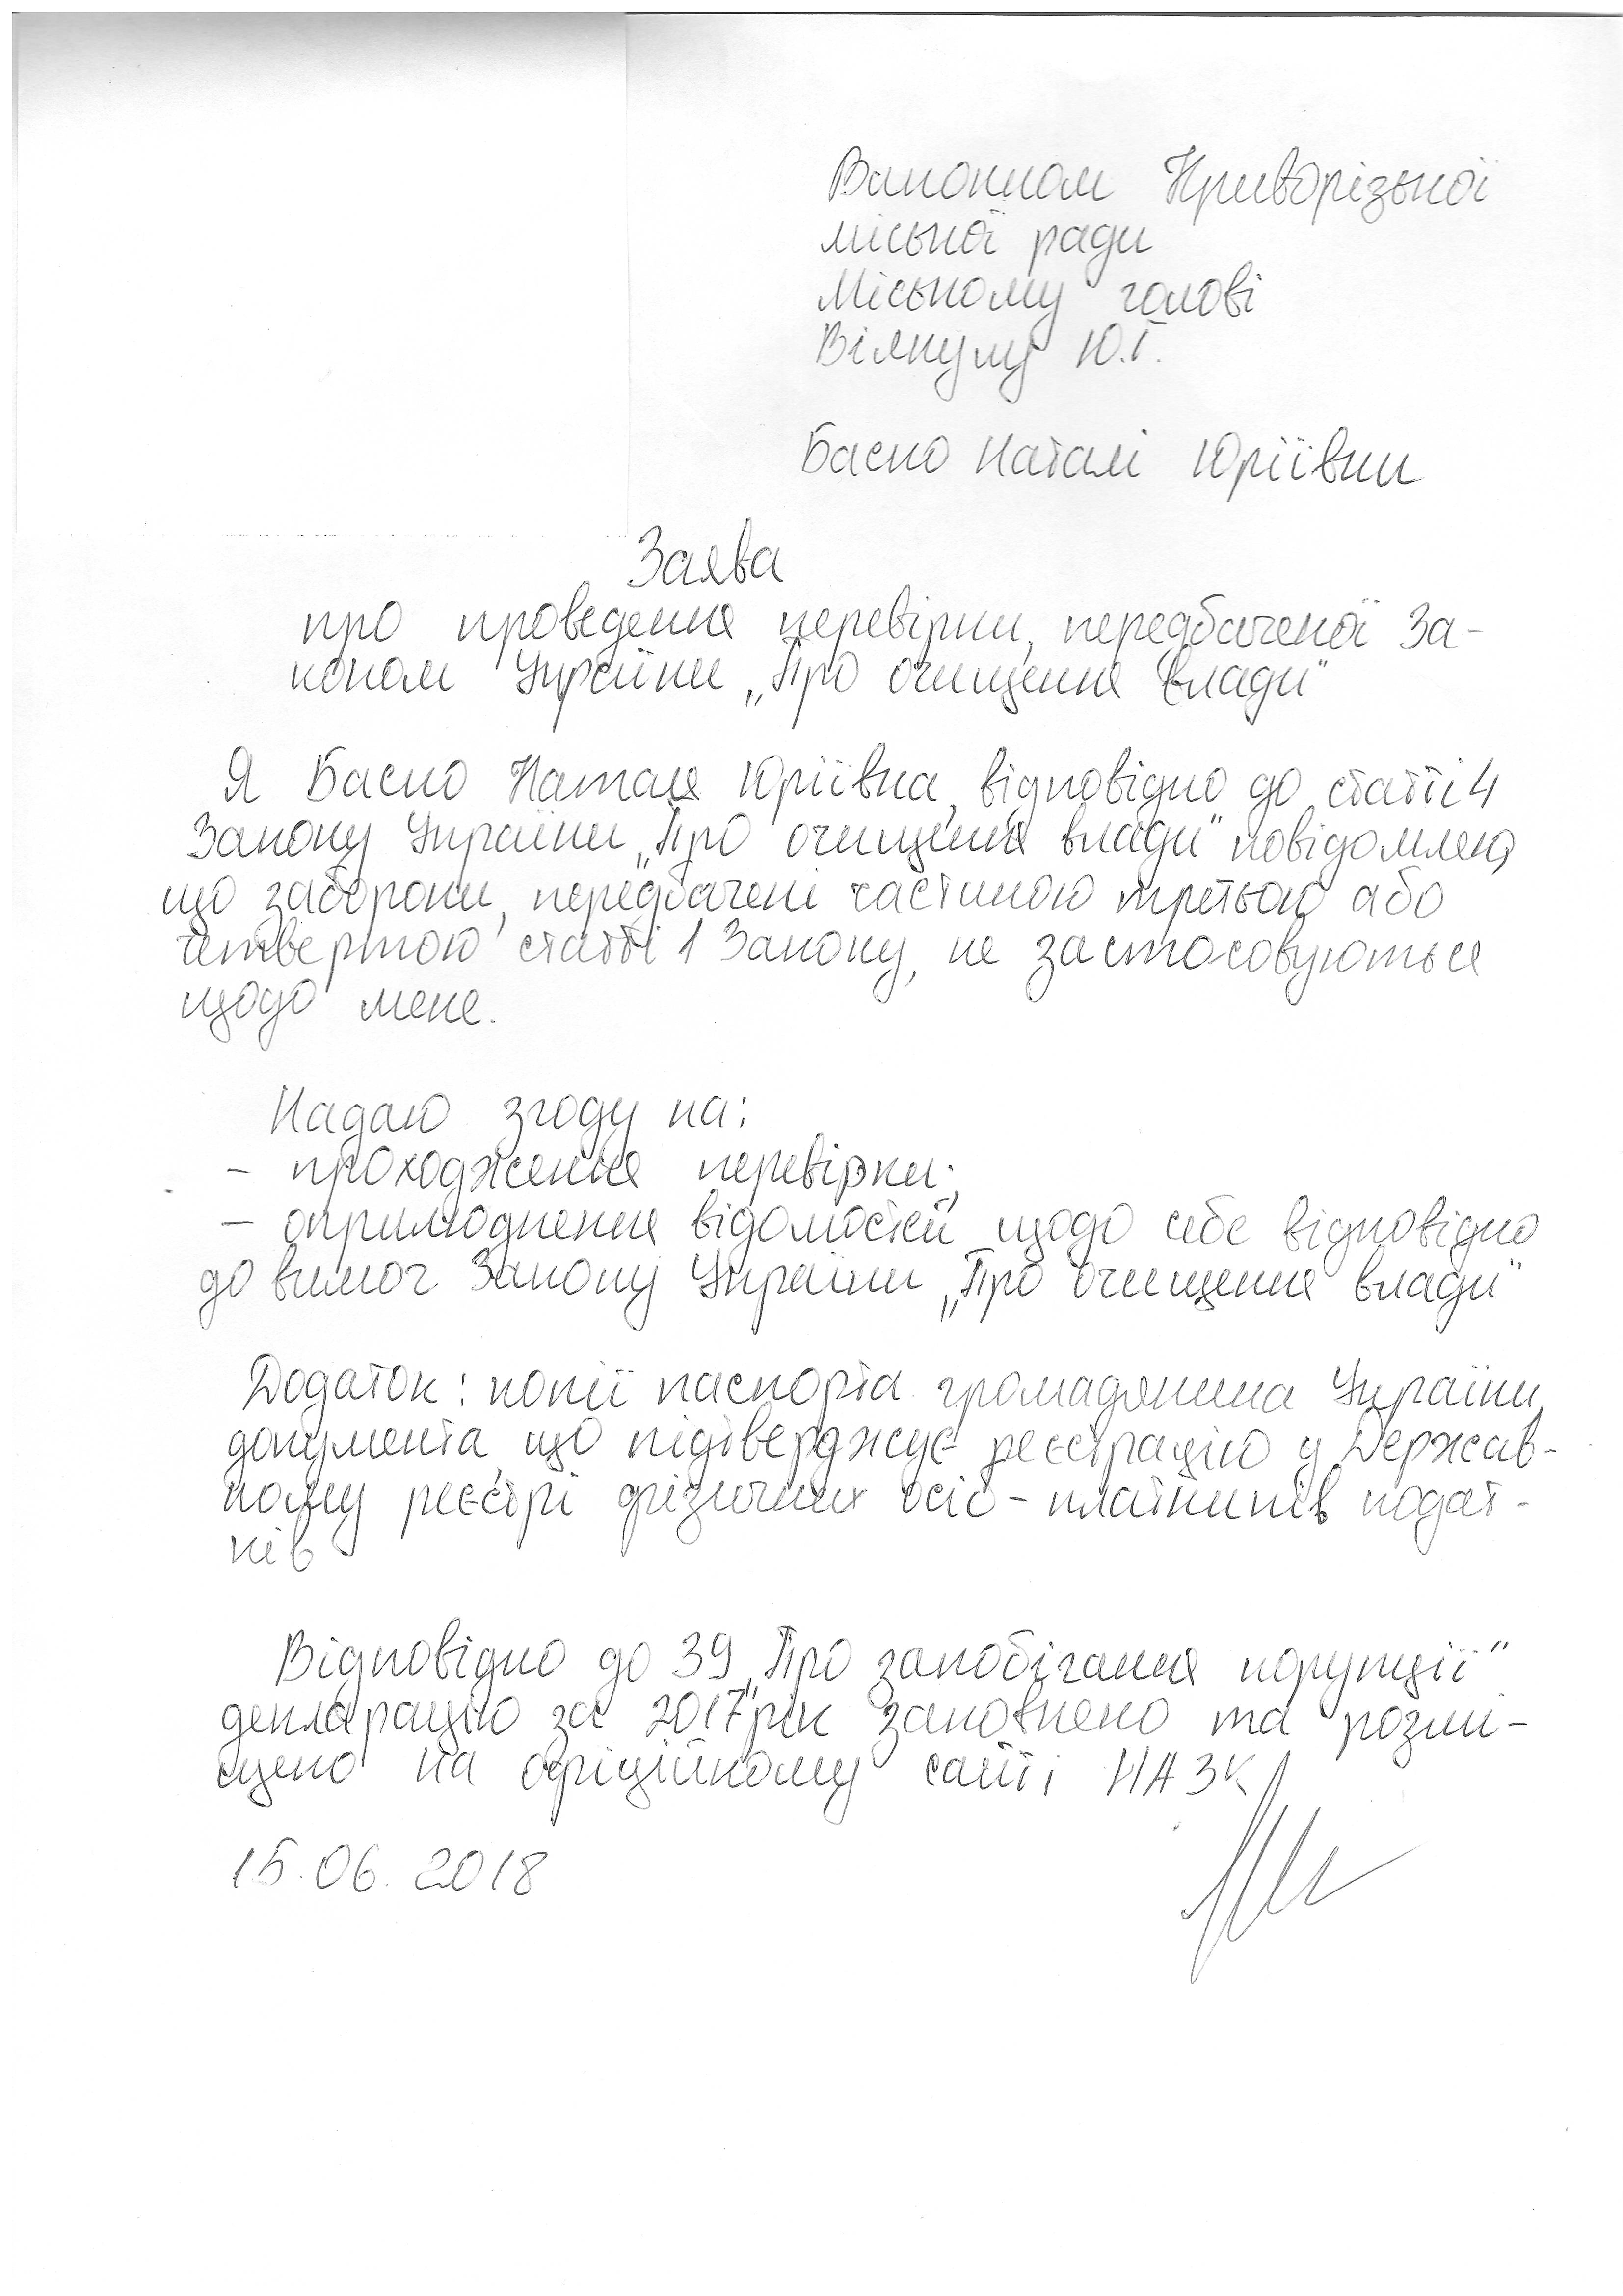 Виконком Криворізької
міської ради
Міському голові
Вілкулу Ю.Г.
Баско Наталі Юріївни
Заява
про проведення перевірки, передбаченої За-
коном України „Про очищення влади"
Я Баско Наталя Юріївна, відповідно до статті 4
Закону України „Про очищення влади" повідомляю,
що заборони, передбачені частиною третьою або
четвертою статті 1 Закону, не застосовуються
щодо мене.
Надаю згоду на:
- проходження перевірки;
- оприлюднення відомостей щодо себе відповідно
до вимог Закону України „Про очищення влади"
Додаток: копії паспорта громадянина України,
документа, що підтверджує реєстрацію у Держав-
ному реєстрі фізичних осіб - платників подат-
ків
Відповідно до ЗУ „Про запобігання корупції"
декларацію за 2017 рік заповнено та розмі-
щено на офіційному сайті НАЗК
15.06.2018